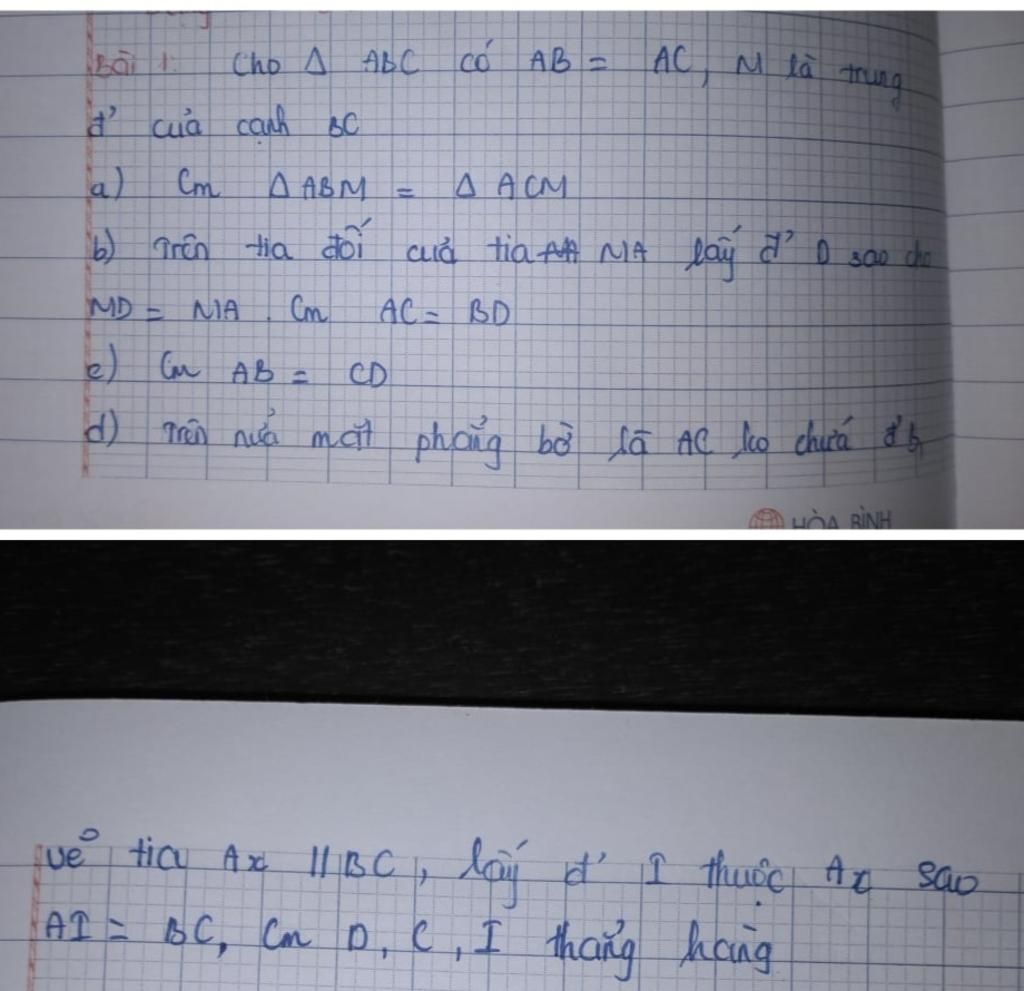 Bài 1. Cho Δ ABC có AB = AC, M là trung
đ' của cạnh BC
a) Cm Δ ABM = Δ ACM
b) Trên tia đối của tia MA lấy đ' D sao cho
MD = MA. Cm AC = BD
c) Cm AB = CD
d) Trên nửa mặt phẳng bờ là AC ko chứa đ' B
HÒA BÌNH
vẽ tia Ax // BC, lấy đ' I thuộc Ax sao
AI = BC, Cm D, C, I thẳng hàng